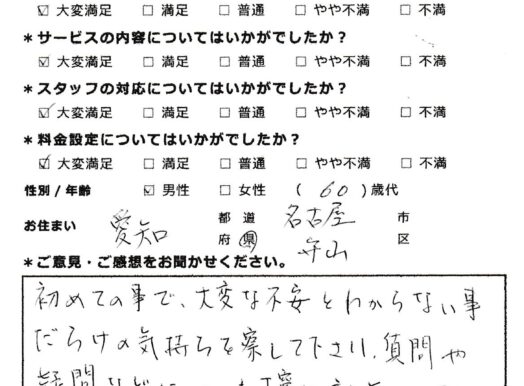 ☑ 大変満足 □ 満足 □ 普通 □ やや不満 □ 不満
＊サービスの内容についてはいかがでしたか？
☑ 大変満足 □ 満足 □ 普通 □ やや不満 □ 不満
＊スタッフの対応についてはいかがでしたか？
☑ 大変満足 □ 満足 □ 普通 □ やや不満 □ 不満
＊料金設定についてはいかがでしたか？
☑ 大変満足 □ 満足 □ 普通 □ やや不満 □ 不満
性別 / 年齢 ☑ 男性 □ 女性 （ 60 ）歳代
お住まい 愛知 都 道 府 県 名古屋 市 守山 区
＊ご意見・ご感想をお聞かせください。
初めての事で、大変な不安とわからない事
だらけの気持ちを察して下さり、質問や
疑問